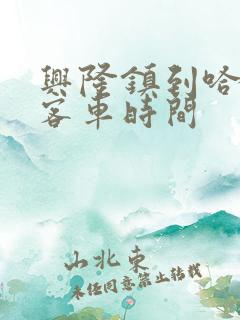 興隆鎮到哈
客車時間
山北東
未經同意禁止轉載